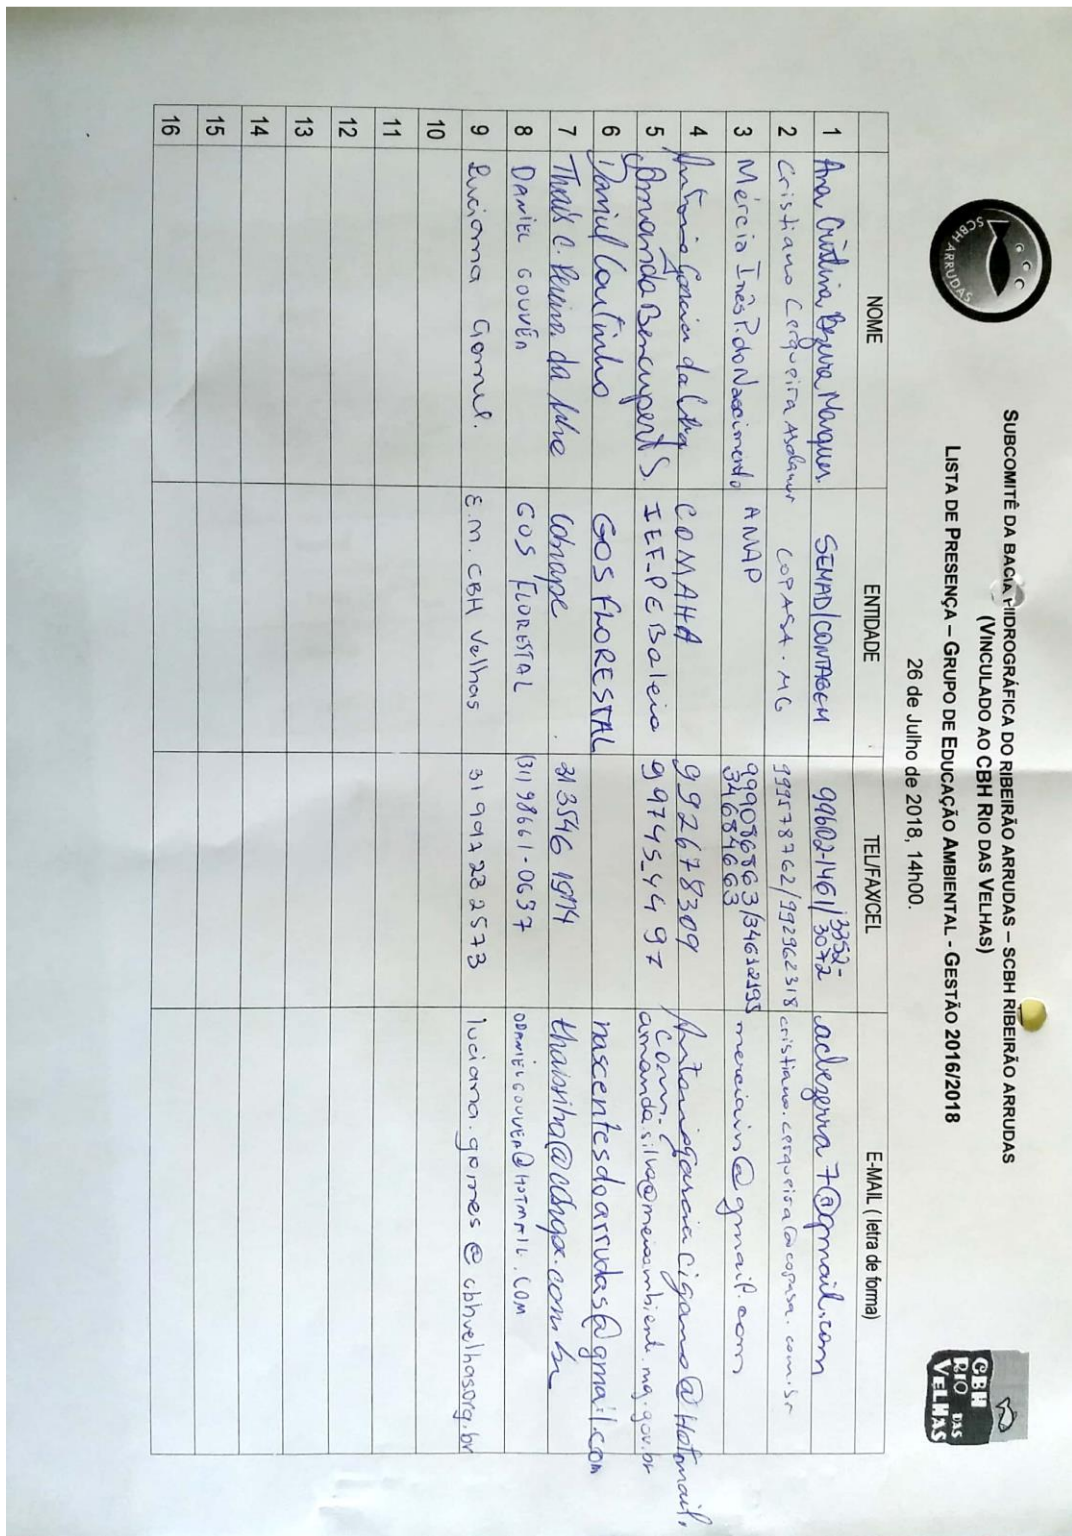 SCBH ARRUDAS
SUBCOMITÊ DA BACIA HIDROGRÁFICA DO RIBEIRÃO ARRUDAS – SCBH RIBEIRÃO ARRUDAS
(VINCULADO AO CBH RIO DAS VELHAS)
LISTA DE PRESENÇA – GRUPO DE EDUCAÇÃO AMBIENTAL - GESTÃO 2016/2018
26 de Julho de 2018, 14h00.
CBH RIO DAS VELHAS
NOME ENTIDADE TEL/FAX/CEL E-MAIL ( letra de forma)
1 Ana Cristina Bezerra Marques. SEMAD/CONTAGEM 99602-1461/3352-3072 acbezerra7@gmail.com
2 Cristiano Cerqueira COPASA. MG 999578762/992962318 cristiano.cerqueira@copasa.com.br
3 Mércia Inês P. do Nascimento AMAP 999086863/34612193 merciain@gmail.com
34684663
4 Antonio Garcia da COMAHA 992678309 Antoniogarciacigano@Hotmail.
com.
5 Amanda S. IEF-PE Baleia 99745-4497 amanda.silva@meioambiente.mg.gov.br
6 Daniel Coutinho GOS FLORESTAL nascentesdoarrudas@gmail.com
7 Thaís C. Pereira da 31 3546
8 DANIEL GOUVÊA GOS FLORESTAL (31) 98661-0637 ODANIELGOUVEA@HOTMAIL.COM
9 Luciana Gomes. E.M. CBH Velhas 31 997232573 luciana.gomes@cbhvelhas.org.br
10
11
12
13
14
15
16